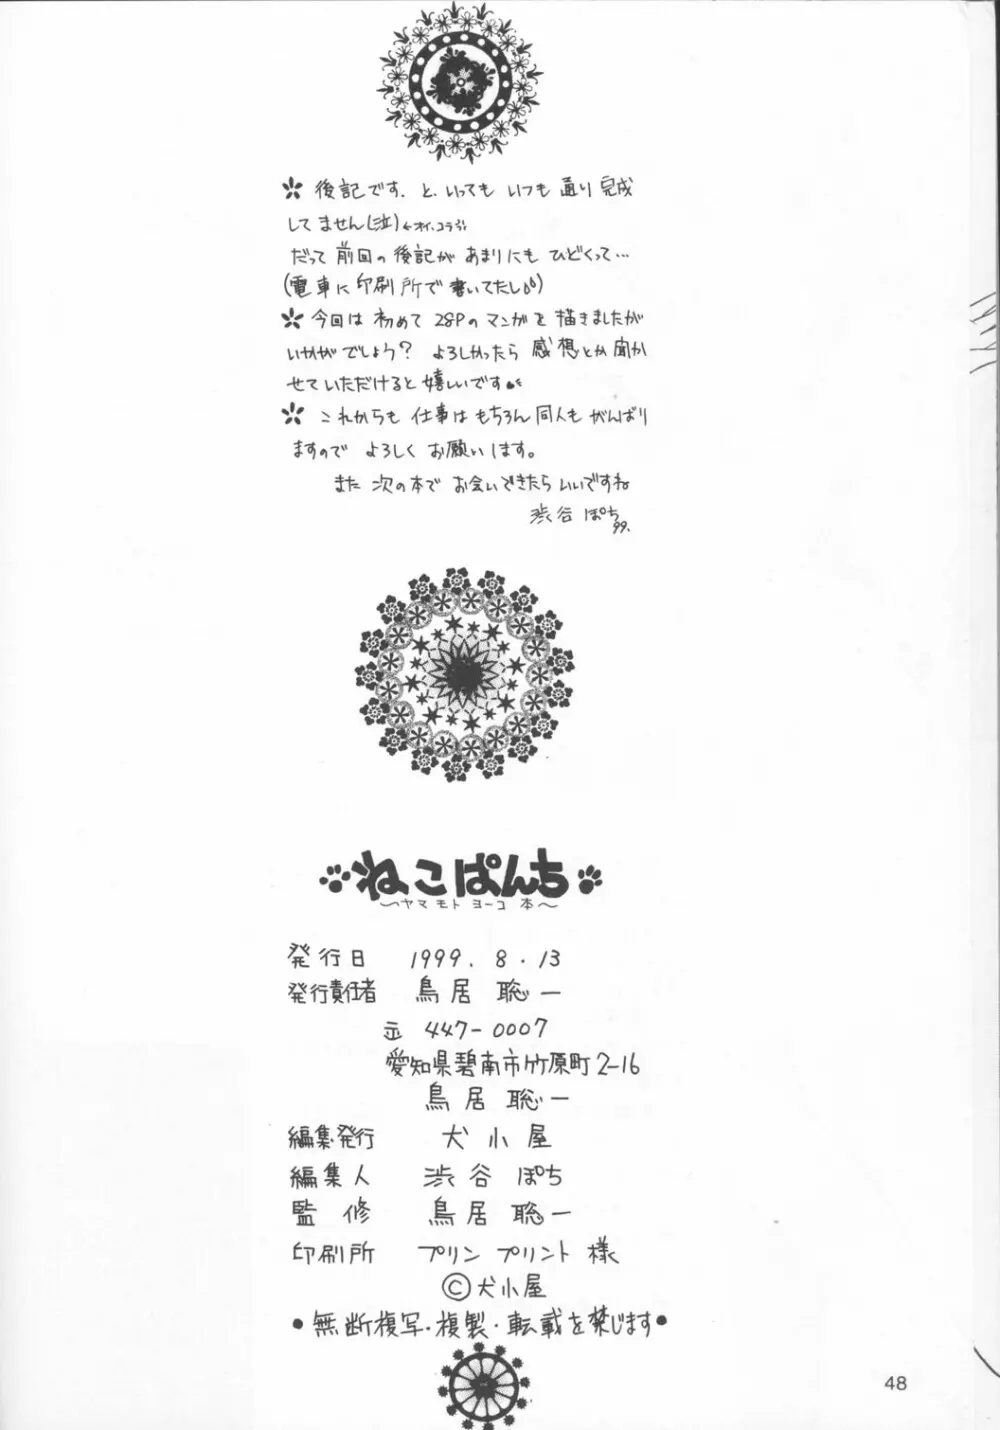 後記です. と、いっても いつも 通り 完成
してません(泣)←オイ、コラ!!
だって 前回の後記が あまりにも ひどくって…
(電車に印刷所で 書いてたし)
今回は 初めて 28Pの マンガを 描きましたが
いかがでしょう? よろしかったら 感想とか 聞か
せていただけると 嬉しいです
これからも 仕事は もちろん 同人も がんばり
ますので よろしく お願いします。
また 次の本で お会いできたら いいですね
渋谷 ぽち
99.
ねこぱんち
〜ヤマモト ヨーコ 本〜
発行日 1999. 8. 13
発行責任者 鳥居 聡一
〒 447-0007
愛知県碧南市竹原町2-16
鳥居 聡一
編集発行 犬小屋
編集人 渋谷 ぽち
監修 鳥居 聡一
印刷所 プリン プリント 様
©犬小屋
●無断複写・複製・転載を禁じます●
48